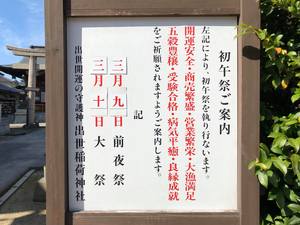 初午祭ご案内
左記により、初午祭を執り行ないます。
開運安全・商売繁栄・営業繁栄・大漁満足
五穀豊穣・受験合格・病気平癒・良縁成就
をご祈願されますようご案内します。
記
三月九日 前夜祭
三月十日 大祭
出世開運の守護神 出世稲荷神社